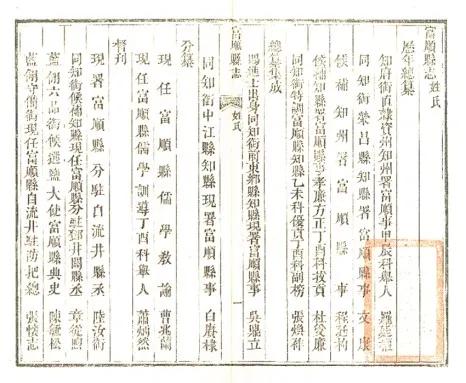 富順縣志 姓氏
歷年總纂
知府銜直隸資州知州署富順事甲辰科舉人
同知銜榮昌縣知縣署富順縣事文康
候補知州署富順縣事
候補知縣署富順縣事孝廉方正丁酉科拔貢杜受廉
同知銜特調富順縣知縣乙未科優貢丁酉科副榜張煥祚
總纂集成
賜進士出身同知銜前東鄉縣知縣現署富順縣事吳鼎立
富順縣志 姓氏 一
同知銜中江縣知縣現署富順縣事白賡棣
分纂
現任富順縣儒學教諭曹兆蘭
現任富順縣儒學訓導丁酉科舉人蕭炳然
督刊
現署富順縣分駐自流井縣丞陸汝銜
同知銜候補知縣現任富順縣分駐鄧井關縣丞章從
藍翎六品銜候選鹽大使富順縣典史陳毓松
藍翎守備銜現任富順縣自流井駐防把總張懷志